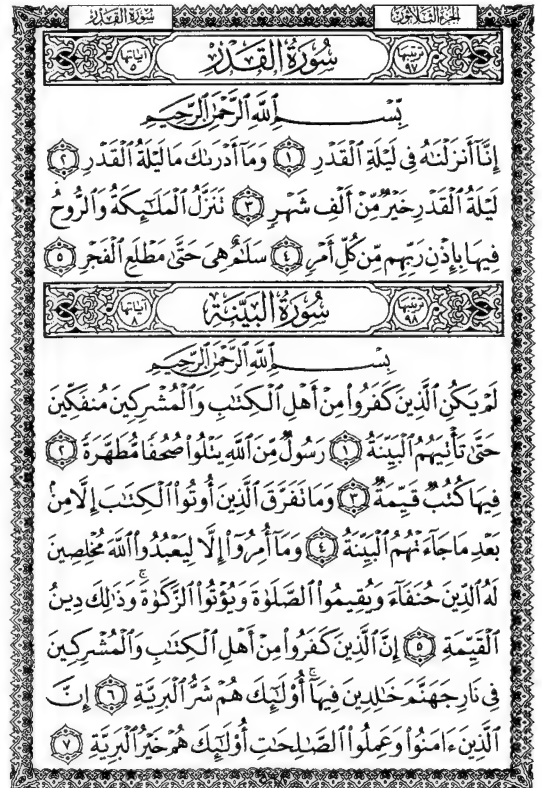 الجزء الثلاثون سورة القدر
ترتيبها ٩٧ سورة القدر آياتها ٥
بِسْمِ ٱللَّهِ ٱلرَّحْمَٰنِ ٱلرَّحِيمِ
إِنَّآ أَنزَلْنَٰهُ فِى لَيْلَةِ ٱلْقَدْرِ ١ وَمَآ أَدْرَىٰكَ مَا لَيْلَةُ ٱلْقَدْرِ ٢
لَيْلَةُ ٱلْقَدْرِ خَيْرٌ مِّنْ أَلْفِ شَهْرٍ ٣ تَنَزَّلُ ٱلْمَلَٰٓئِكَةُ وَٱلرُّوحُ
فِيهَا بِإِذْنِ رَبِّهِم مِّن كُلِّ أَمْرٍ ٤ سَلَٰمٌ هِىَ حَتَّىٰ مَطْلَعِ ٱلْفَجْرِ ٥
ترتيبها ٩٨ سورة البينة آياتها ٨
بِسْمِ ٱللَّهِ ٱلرَّحْمَٰنِ ٱلرَّحِيمِ
لَمْ يَكُنِ ٱلَّذِينَ كَفَرُوا۟ مِنْ أَهْلِ ٱلْكِتَٰبِ وَٱلْمُشْرِكِينَ مُنفَكِّينَ
حَتَّىٰ تَأْتِيَهُمُ ٱلْبَيِّنَةُ ١ رَسُولٌ مِّنَ ٱللَّهِ يَتْلُوا۟ صُحُفًا مُّطَهَّرَةً ٢
فِيهَا كُتُبٌ قَيِّمَةٌ ٣ وَمَا تَفَرَّقَ ٱلَّذِينَ أُوتُوا۟ ٱلْكِتَٰبَ إِلَّا مِنۢ
بَعْدِ مَا جَآءَتْهُمُ ٱلْبَيِّنَةُ ٤ وَمَآ أُمِرُوٓا۟ إِلَّا لِيَعْبُدُوا۟ ٱللَّهَ مُخْلِصِينَ
لَهُ ٱلدِّينَ حُنَفَآءَ وَيُقِيمُوا۟ ٱلصَّلَوٰةَ وَيُؤْتُوا۟ ٱلزَّكَوٰةَ ۚ وَذَٰلِكَ دِينُ
ٱلْقَيِّمَةِ ٥ إِنَّ ٱلَّذِينَ كَفَرُوا۟ مِنْ أَهْلِ ٱلْكِتَٰبِ وَٱلْمُشْرِكِينَ
فِى نَارِ جَهَنَّمَ خَٰلِدِينَ فِيهَآ ۚ أُو۟لَٰٓئِكَ هُمْ شَرُّ ٱلْبَرِيَّةِ ٦ إِنَّ
ٱلَّذِينَ ءَامَنُوا۟ وَعَمِلُوا۟ ٱلصَّٰلِحَٰتِ أُو۟لَٰٓئِكَ هُمْ خَيْرُ ٱلْبَرِيَّةِ ٧